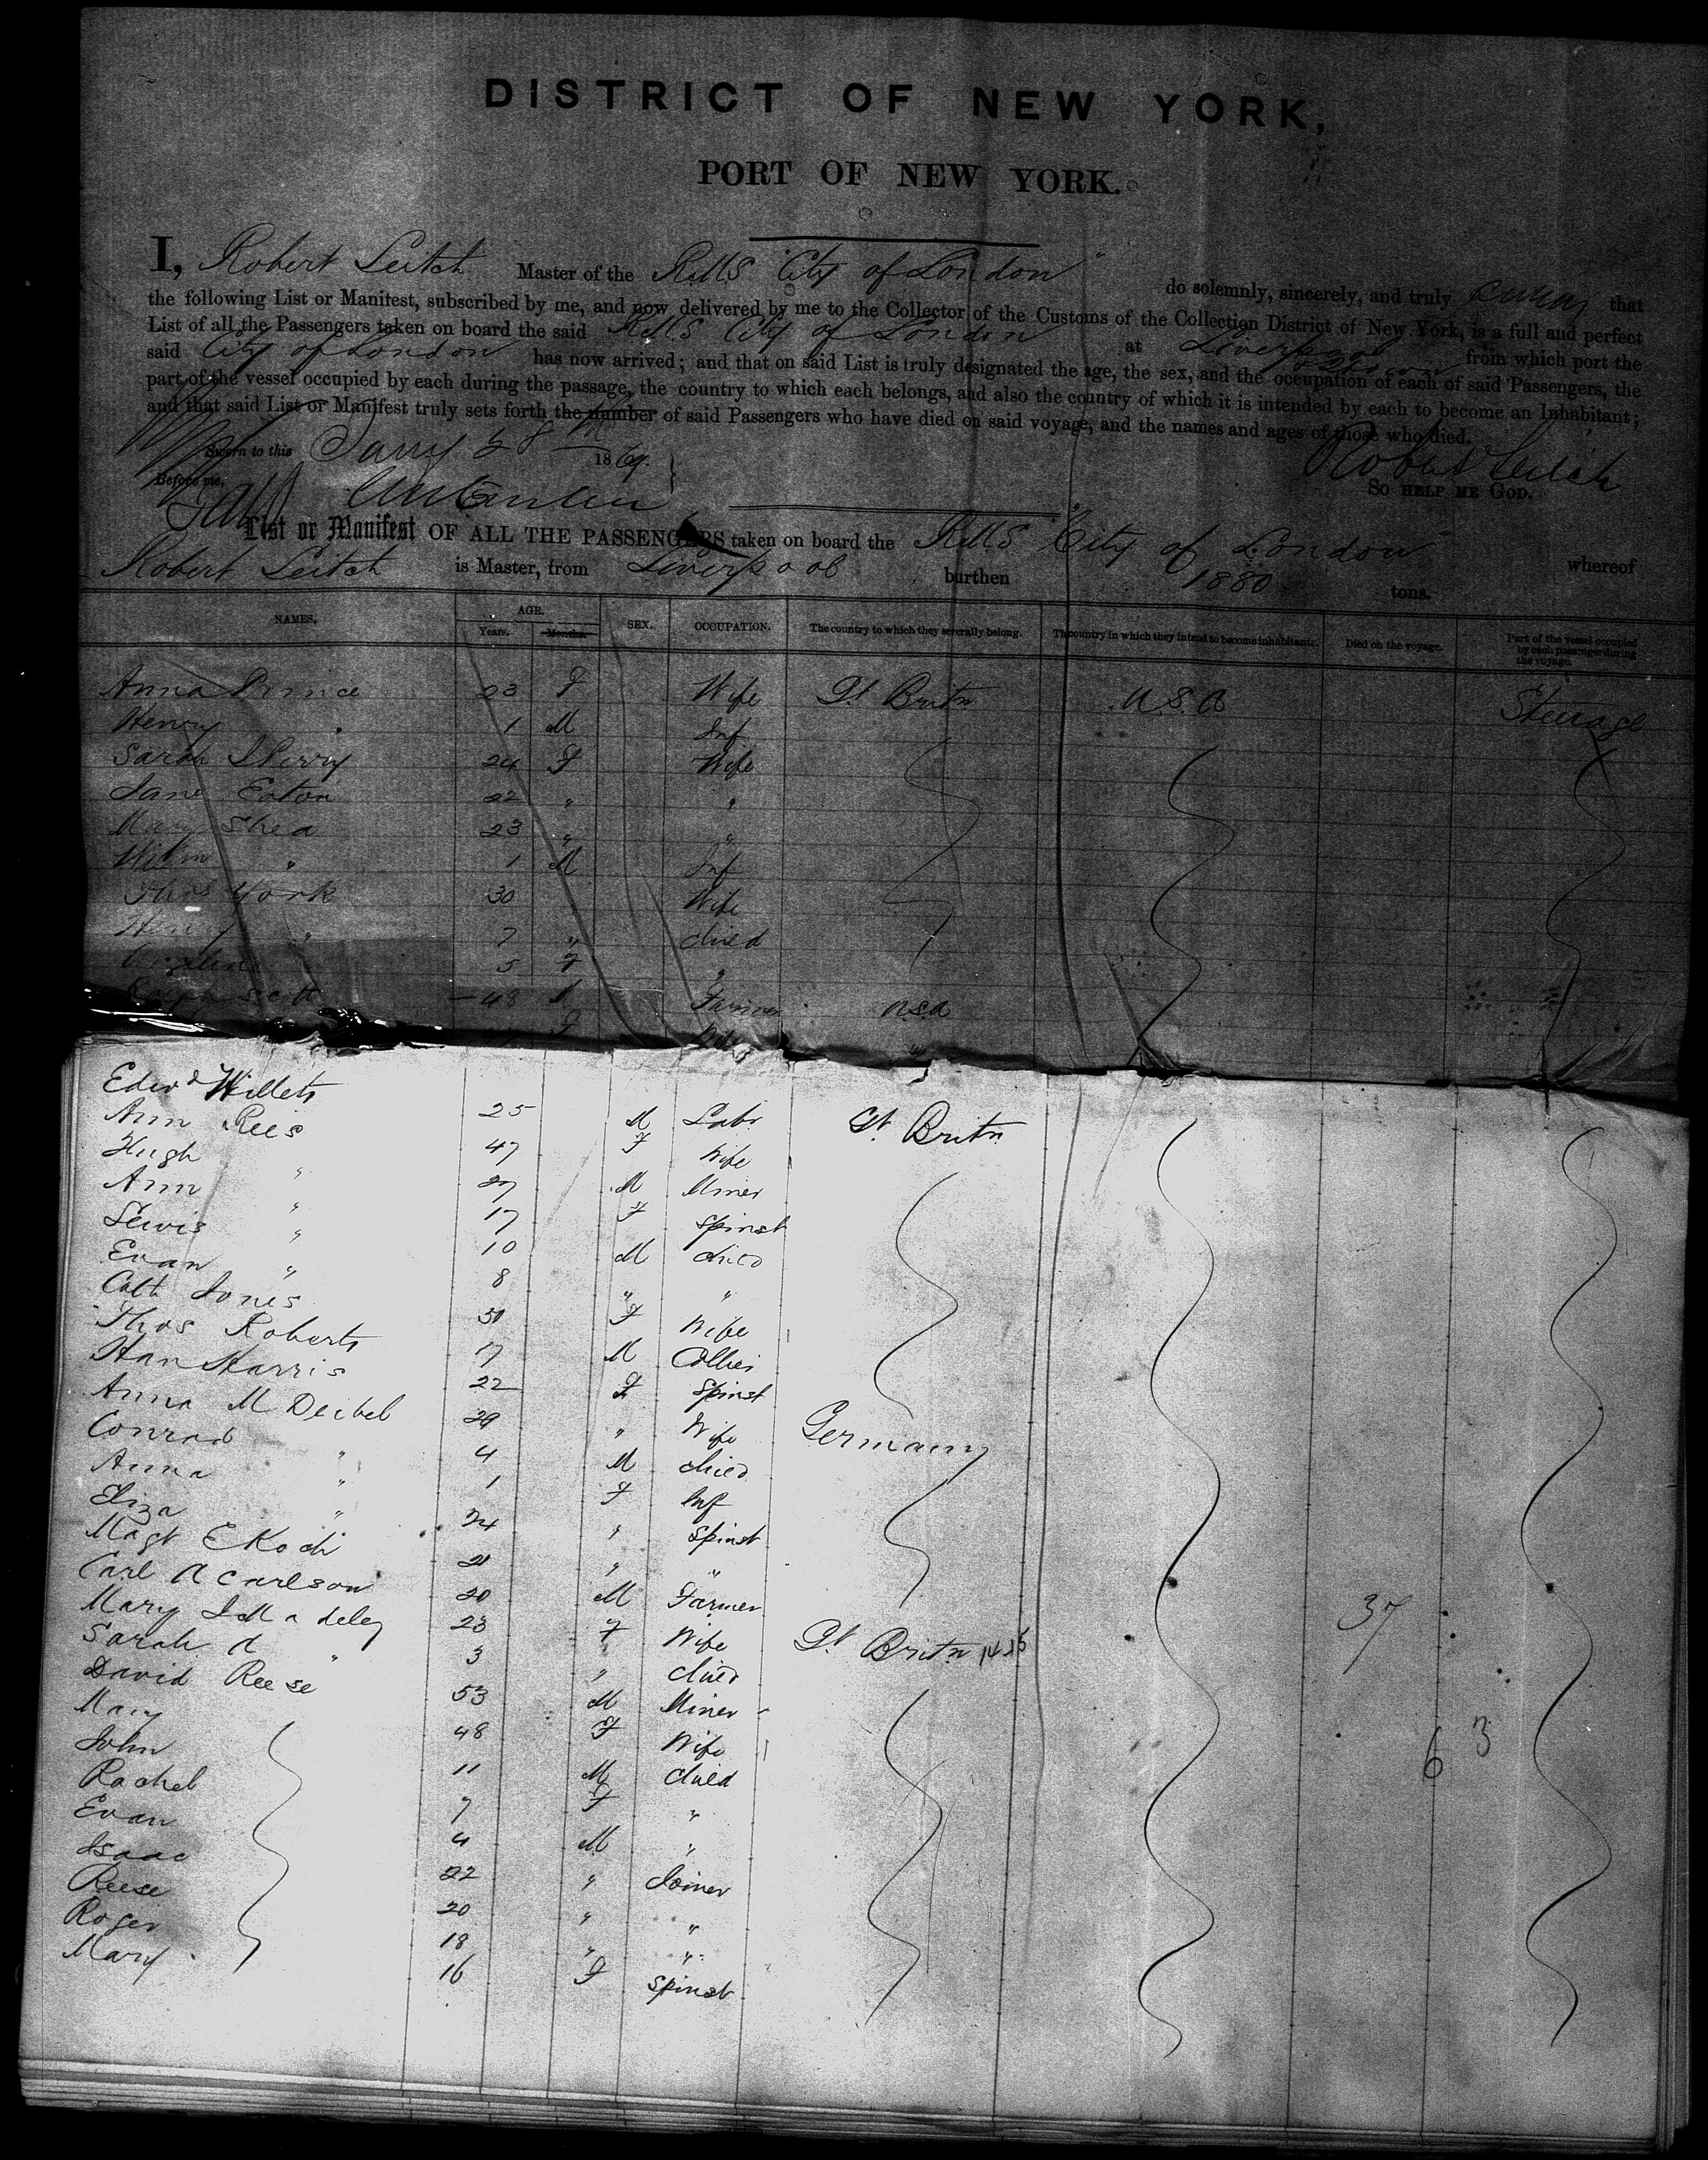 DISTRICT OF NEW YORK,
PORT OF NEW YORK.
I, Robert Leitch Master of the RMS "City of London" do solemnly, sincerely, and truly swear that
the following List or Manifest, subscribed by me, and now delivered by me to the Collector of the Customs of the Collection District of New York, is a full and perfect
List of all the Passengers taken on board the said RMS City of London at Liverpool from which port the
said City of London has now arrived; and that on said List is truly designated the age, the sex, and the occupation of each of said Passengers, the
part of the vessel occupied by each during the passage, the country to which each belongs, and also the country of which it is intended by each to become an Inhabitant;
and that said List or Manifest truly sets forth the number of said Passengers who have died on said voyage, and the names and ages of those who died.
Sworn to this Jany 28th 1869. Robert Leitch
Before me, So HELP ME GOD.
List or Manifest OF ALL THE PASSENGERS taken on board the RMS "City of London" whereof
Robert Leitch is Master, from Liverpool burthen 1880 tons.
NAMES. AGE. Years. Months. SEX. OCCUPATION. The country to which they severally belong. The country in which they intend to become inhabitants. Died on the voyage. Part of the vessel occupied by each passenger during the voyage.
Anna Prince 23 F Wife Gt Britn U.S.A Steerage
Henry " 1 M Inf
Sarah Perry 24 F Wife
Jane Eaton 22 " "
Mary Shea 23 " "
Willm " 1 M Inf
York 30 Wife
Henry " 7 " Child
5 F "
Scott 48 M Farmer U.S.A
F
Edwd Willets 25 M Labr Gt Britn
Ann Rees 47 F Wife
Hugh " 27 M Miner
Ann " 17 F Spinst
Lewis " 10 M Child
Evan " 8 " "
Cath Jones 30 F Wife
Thos Roberts 17 M Collier
Han Harris 22 F Spinst
Anna M Deibel 29 " Wife Germany
Conrad " 4 M Child
Anna " 1 F Inf
Eliza " 24 " Spinst
Magt E Koch 21 " "
Carl A Carlson 20 M Farmer
Mary J Madeley 23 F Wife Gt Britn
Sarah A " 3 " Child
David Reese 53 M Miner
Mary 48 F Wife
John 11 M Child
Rachel 7 F "
Evan 4 M "
Isaac 22 " Joiner
Reese 20 " "
Roger 18 " "
Mary 16 F Spinst
37
63